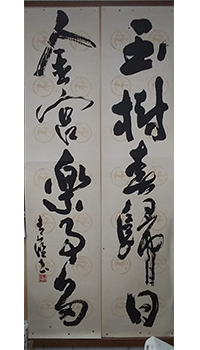 玉樹春歸日
金宮樂事多